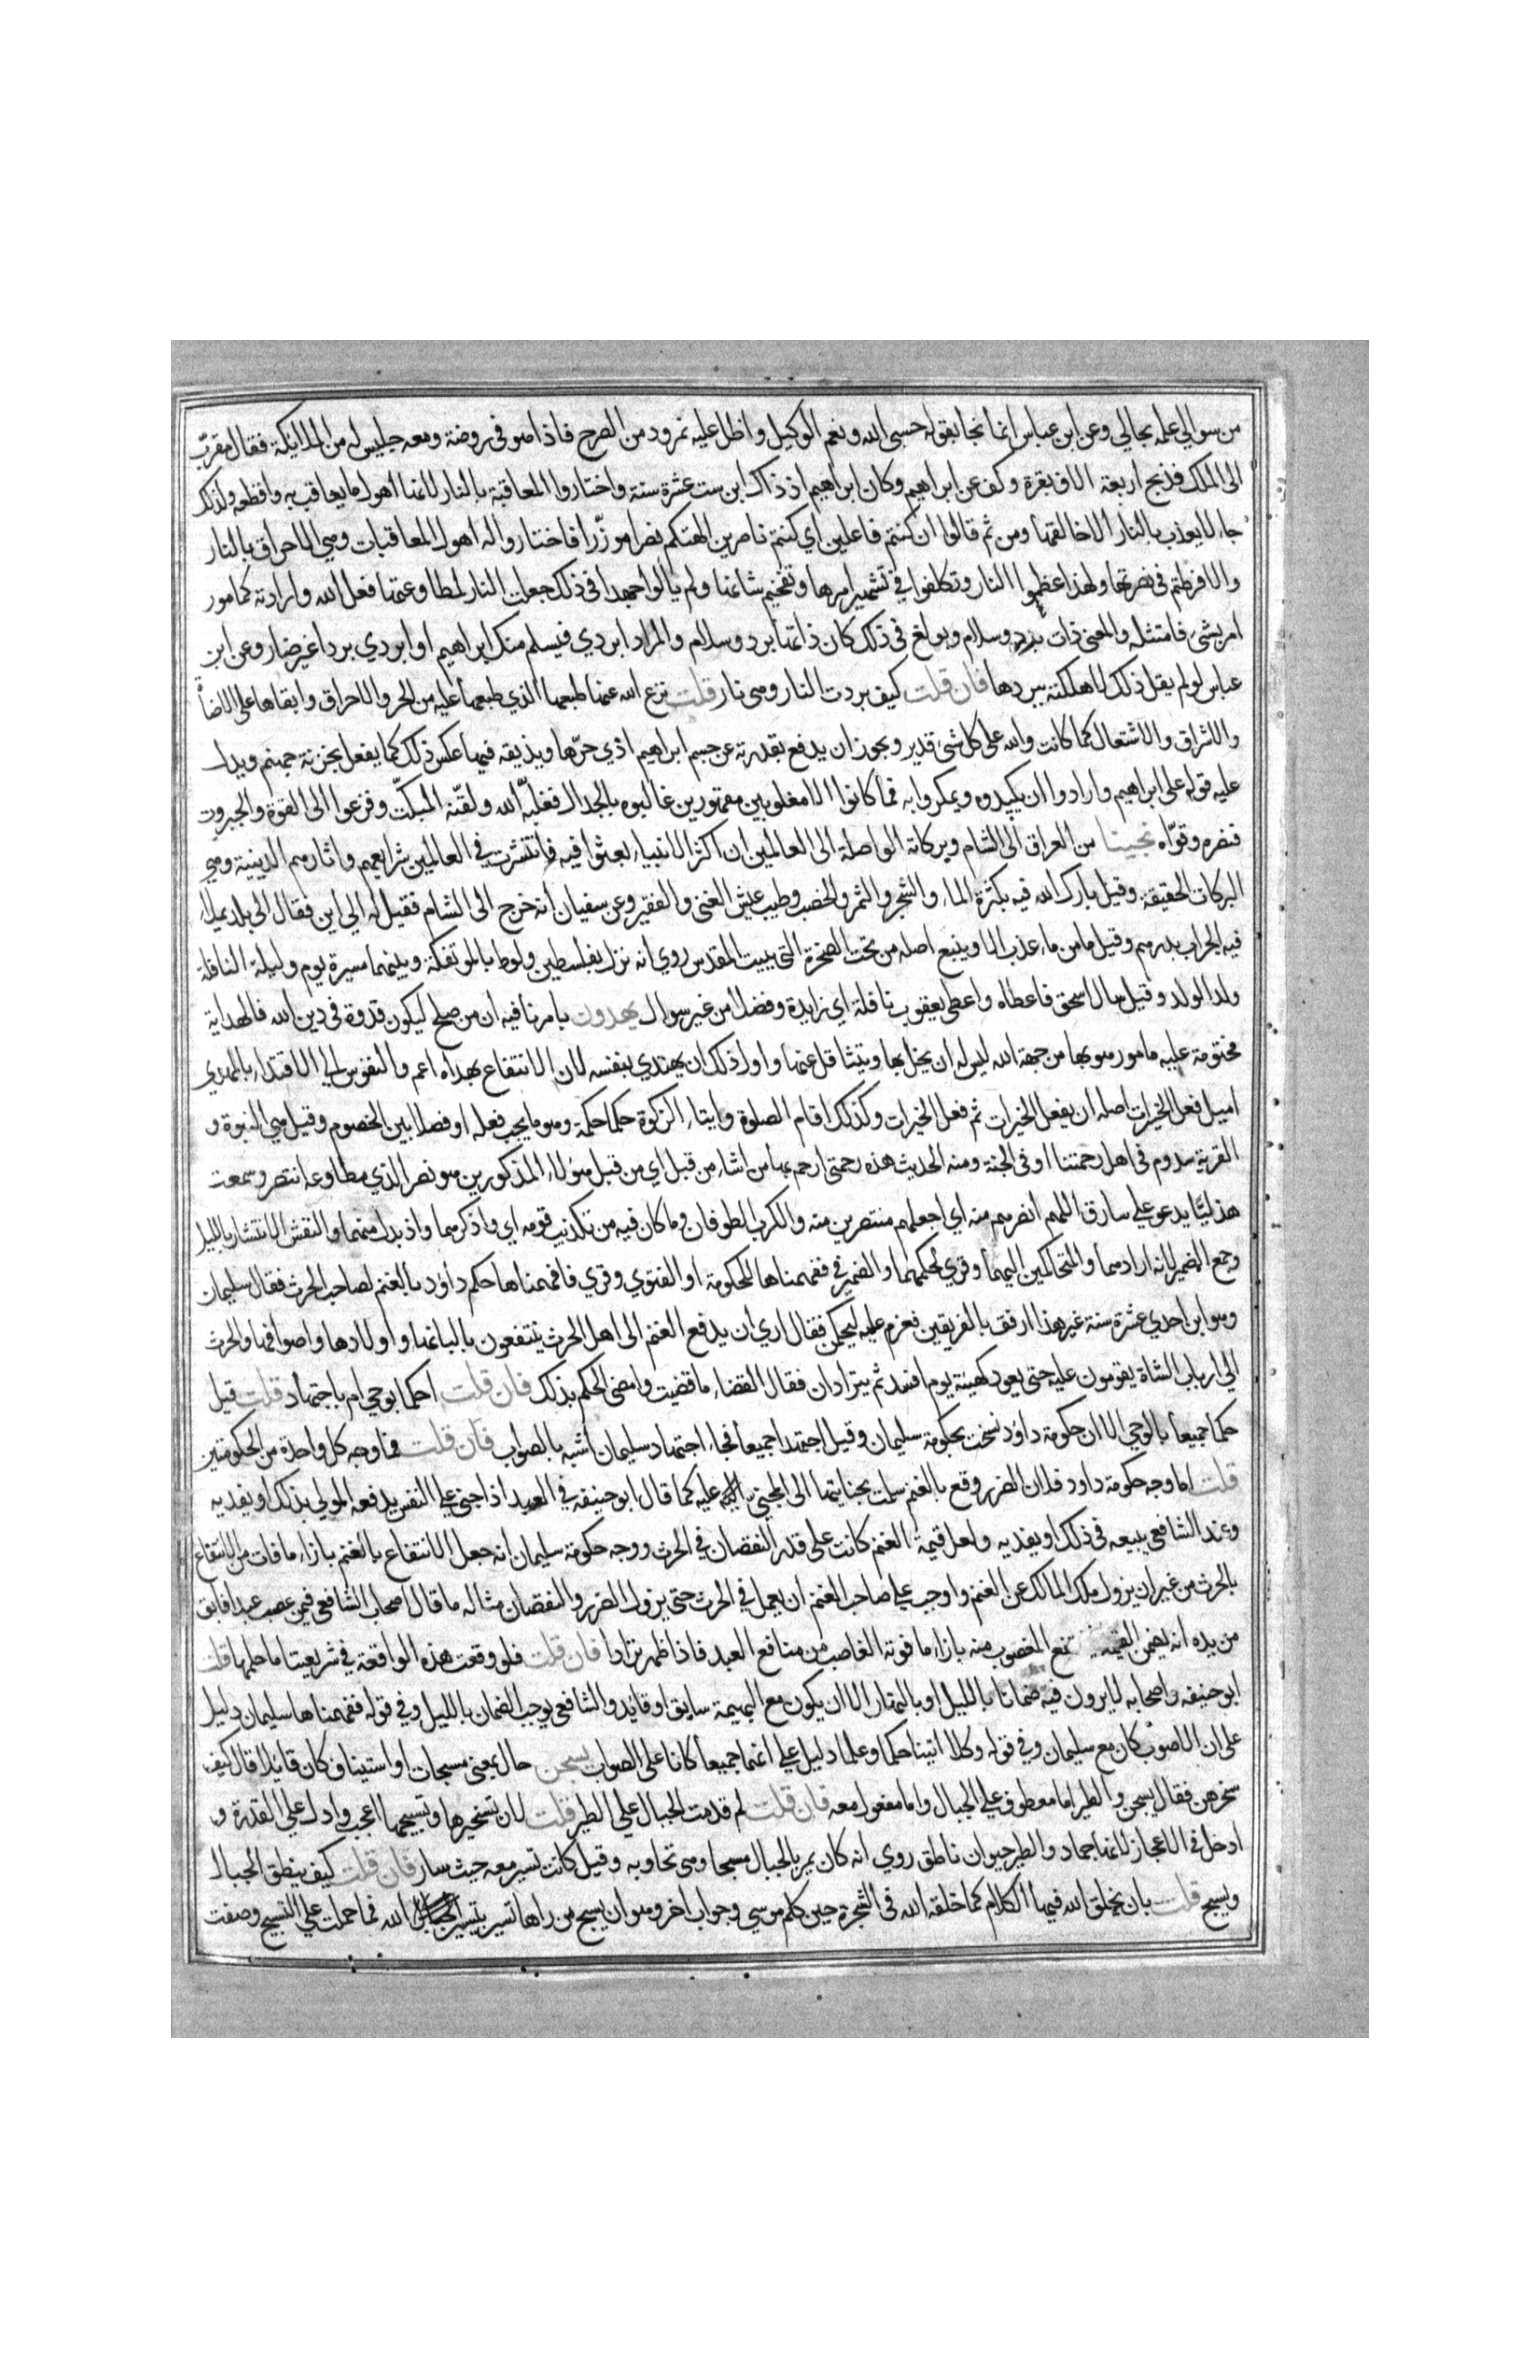 من سوالي علمه بحالي وعن ابن عباس انما نجا بقوله حسبي الله ونعم الوكيل واطل عليه نمرود من الصرح فاذا هو في روضة ومعه جليس له من الملايكة فقال اني مقرّب
الى الملك فذبح اربعة الاف بقرة وكف عن ابراهيم وكان ابراهيم اذ ذاك ابن ست عشرة سنة واختاروا المعاقبة بالنار لانها اهول ما يعاقب به وافظعه ولذلك
جاء لا يعذب بالنار الا خالقها ومن ثم قالوا ان كنتم فاعلين اي كنتم ناصرين الهتكم نصرا موزّرا فاختاروا له اهول المعاقبات وهي الاحراق بالنار
والا فرطتم في نصرتها ولهذا عظموا النار وتكلفوا في تشهير امرها وتفخيم شانها ولم يالوا جهدا في ذلك جعلت النار لمطاوعتها فعل الله وارادته كمامور
امر بشيء فامتثله والمعنى ذات برد وسلام وبولغ في ذلك كان ذاتها برد وسلام والمراد ابردي فيسلم منك ابراهيم او ابردي بردا غير ضار وعن ابن
عباس لو لم يقل ذلك لاهلكته ببردها فان قلت كيف بردت النار وهي نار قلت نزع الله عنها طبعها الذي طبعها عليه من الحر والاحراق وابقاها على الاضاة
والاشراق والاشتعال كما كانت والله على كل شيء قدير ويجوز ان يدفع بقدرته عن جسم ابراهيم اذي حرّها ويذيقه فيها عكس ذلك كما يفعل بخزنة جهنم ويدل
عليه قوله على ابراهيم وارادوا ان يكيدوه ويمكروا به فما كانوا الا مغلوبين مقهورين غالبوه بالجدال فغلبه الله ولقّنه المبكّت وفزعوا الى القوة والجبروت
فنصره وقوّاه نجينا من العراق الى الشام وبركاته الواصلة الى العالمين ان اكثر الانبياء بعثوا فيه فانتشرت في العالمين شرايعهم واثارهم الدينية وهي
البركات الحقيقة وقيل بارك الله فيه بكثرة الماء والشجر والثمر والخصب وطيب عيش الغني والفقير وعن سفيان انه خرج الى الشام فقيل له الى اين فقال الى بلد يملا
فيه الجراب بدرهم وقيل ما من ماء عذب الا وينبع اصله من تحت الصخرة التي ببيت المقدس روي انه نزل بفلسطين ولوط بالموتفكة وبينهما مسيرة يوم وليلة النافلة
ولد الولد وقيل سال اسحق فاعطاه واعطى يعقوب نافلة اي زايدة وفضلا من غير سوال يهدون بامرنا فيه ان من صلح ليكون قدوة في دين الله فالهداية
محتومة عليه مامور هو بها من جهة الله ليس له ان يخل بها ويتثاقل عنها واول ذلك ان يهتدي بنفسه لان الانتفاع بهداه اعم والنفوس الى الاقتداء بالمهدي
اميل فعل الخيرات اصله ان يفعل الخيرات ثم فعل الخيرات وكذلك اقام الصلوة وايتاء الزكوة حكما حكمة وهو ما يجب فعله او فصلا بين الخصوم وقيل هي النبوة و
القرية سدوم في اهل رحمتنا او في الجنة ومنه الحديث هذه رحمتي ارحم بها من اشاء من قبل اي من قبل هولاء المذكورين هو نصر الذي مطاوعه انتصر وسمعت
هذليّا يدعو على سارق اللهم انصرهم منه اي اجعلهم منتصرين منه والكرب الطوفان وما كان فيه من تكذيب قومه اي واذكرهما واذ بدل منهما والنفش الانتشار بالليل
وجمع الضمير لانه ارادهما والمتحاكمين اليهما وقري لحكمهما والضمير في ففهمناها للحكومة او الفتوي وقري فافهمناها حكم داود بالغنم لصاحب الحرث فقال سليمان
وهو ابن احدي عشرة سنة غير هذا ارفق بالفريقين فعزم عليه ليحكمن فقال اري ان يدفع الغنم الى اهل الحرث ينتفعون بالبانها واولادها واصوافها والحرث
الى ارباب الشاة يقومون عليه حتى يعود كهيئة يوم افسد ثم يترادان فقال القضاء ما قضيت وامضى الحكم بذلك فان قلت احكما بوحي ام باجتهاد قلت قيل
حكما جميعا بالوحي الا ان حكومة داود نسخت بحكومة سليمان وقيل اجتهدا جميعا فجاء اجتهاد سليمان اشبه بالصواب فان قلت فما وجه كل واحدة من الحكومتين
قلت اما وجه حكومة داود فلان الضرر وقع بالغنم سلمت بجنايتها الى المجني عليه كما قال ابو حنيفه في العبد اذا جنى على النفس يدفعه المولى بذلك او يفديه
وعند الشافعي يبيعه في ذلك او يفديه ولعل قيمة الغنم كانت على قدر النقصان في الحرث ووجه حكومة سليمان انه جعل الانتفاع بالغنم بازاء ما فات من الانتفاع
بالحرث من غير ان يزول ملك المالك عن الغنم واوجب على صاحب الغنم ان يعمل في الحرث حتى يزول الضرر والنقصان مثاله ما قال اصحاب الشافعي فيمن غصب عبدا فابق
من يده انه يضمن القيمة المغصوب منه بازاء ما فوته الغاصب من منافع العبد فاذا ظهر ترادا فان قلت فلو وقعت هذه الواقعة في شريعتنا ما حكمها قلت
ابو حنيفه واصحابه لا يرون فيه ضمانا بالليل او بالنهار الا ان يكون مع البهيمة سايق او قايد والشافعي يوجب الضمان بالليل وفي قوله ففهمناها سليمان دليل
على ان الاصوب كان مع سليمان وفي قوله وكلا اتينا حكما وعلما دليل على انهما جميعا كانا على الصواب يسبحن حال بمعنى مسبحات او استيناف كان قايلا قال كيف
سخرهن فقال يسبحن والطير اما معطوف على الجبال واما مفعول معه فان قلت لم قدمت الجبال على الطير قلت لان تسخيرها وتسبيحها اعجب وادل على القدرة و
ادخل في الاعجاز لانها جماد والطير حيوان ناطق روي انه كان يمر بالجبال مسبحا وهي تجاوبه وقيل كانت تسير معه حيث سار فان قلت كيف ينطق الجبال
ويسبح قلت بان يخلق الله فيها الكلام كما خلقه الله في الشجرة حين كلم موسى وجواب اخر وهو ان يسبح من راها تسير بتسيير الله فما حملت على التسبيح وصفت